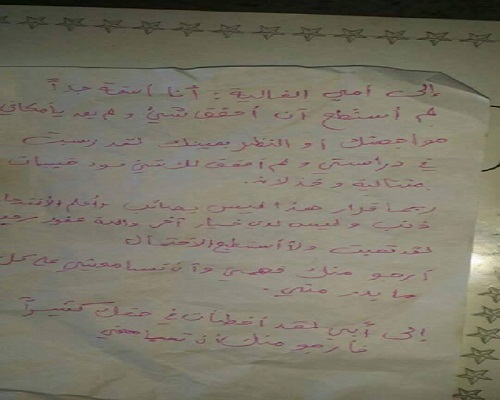 إلى أمي الغالية : أنا آسفة جداً
لم أستطع أن أحقق شيئ ولم يعد بإمكاني
مواجهتك أو النظر بعينك لقد رسبت
في دراستي ولم أحقق لك شيئ سوى خيبات
متتالية وخذلان.
ربما قرار هذا ليس بصائب وأعلم الانتحار
ذنب وليس لدي خيار آخر والله غفور رحيم
لقد تعبت ولا أستطيع الاحتمال
أرجو منك فهمي وأن تسامحوني على كل
ما بدر مني.
إلى أبي لقد أخطأت في حقك كثيراً
فأرجو منك أن تسامحني